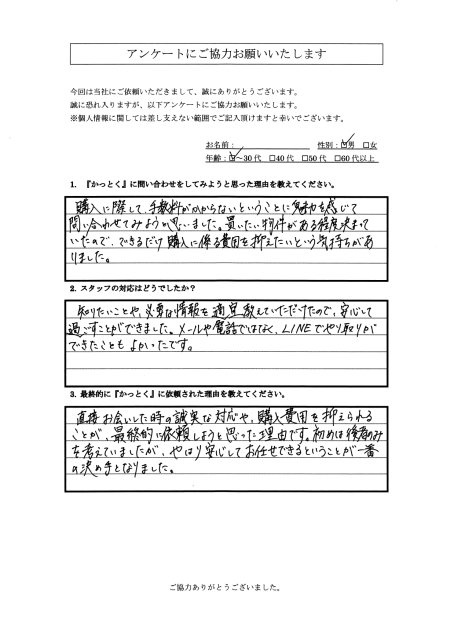 アンケートにご協力お願いいたします
今回は当社にご依頼いただきまして、誠にありがとうございます。
誠に恐れ入りますが、以下アンケートにご協力お願いいたします。
※個人情報に関しては差し支えない範囲でご記入頂けますと幸いでございます。
お名前: 性別:☑男 □女
年齢:☑~30代 □40代 □50代 □60代以上
1. 『かっとく』に問い合わせをしてみようと思った理由を教えてください。
購入に際して、手数料がかからないということに魅力を感じて
問い合わせてみようと思いました。買いたい物件がある程度決まって
いたので、できるだけ購入に係る費用を抑えたいという気持ちがあ
りました。
2. スタッフの対応はどうでしたか?
知りたいことや、必要な情報を適宜教えていただけたので、安心して
過ごすことができました。メールや電話ではなく、LINEでやり取りが
できたこともよかったです。
3. 最終的に『かっとく』に依頼された理由を教えてください。
直接お会いした時の誠実な対応や、購入費用を抑えられる
ことが、最終的に依頼しようと思った理由です。初めは後者のみ
を考えていましたが、やはり安心してお任せできるということが一番
の決め手となりました。
ご協力ありがとうございました。